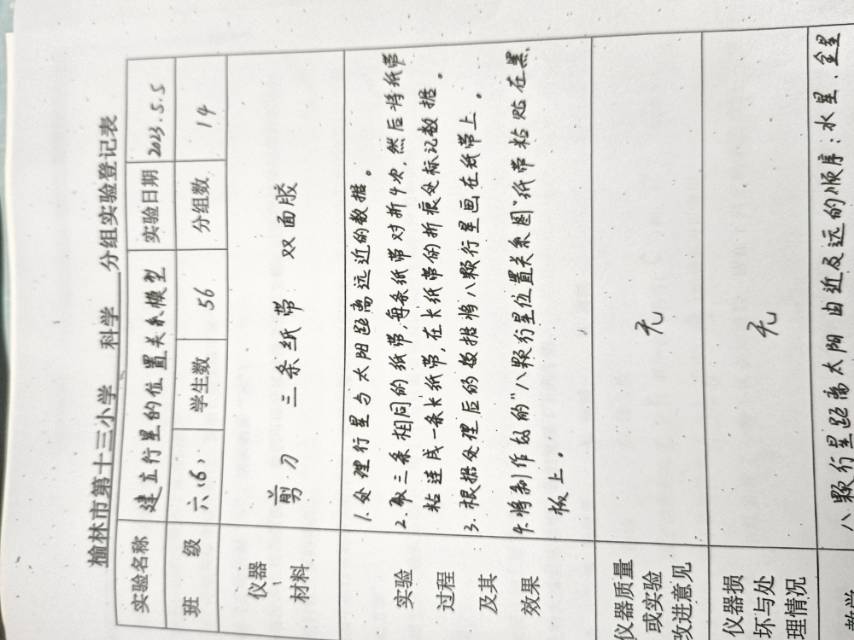 榆林市第十三小学 科学 分组实验登记表
实验名称 建立行星的位置关系模型 实验日期 2023.5.5
班 级 六(6) 学生数 56 分组数 14
仪器材料 剪刀 三条纸带 双面胶
实验过程及其效果
1.处理行星与太阳距离远近的数据。
2.取三条相同的纸带,每条纸带对折4次,然后将纸带
粘连成一条长纸带,在长纸带的折痕处标记数据。
3.根据处理后的数据将八颗行星画在纸带上。
4.将制作好的“八颗行星位置关系图”纸带粘贴在黑
板上。
仪器质量或实验改进意见 无
仪器损坏与处理情况 无
八颗行星距离太阳由近及远的顺序:水星、金星